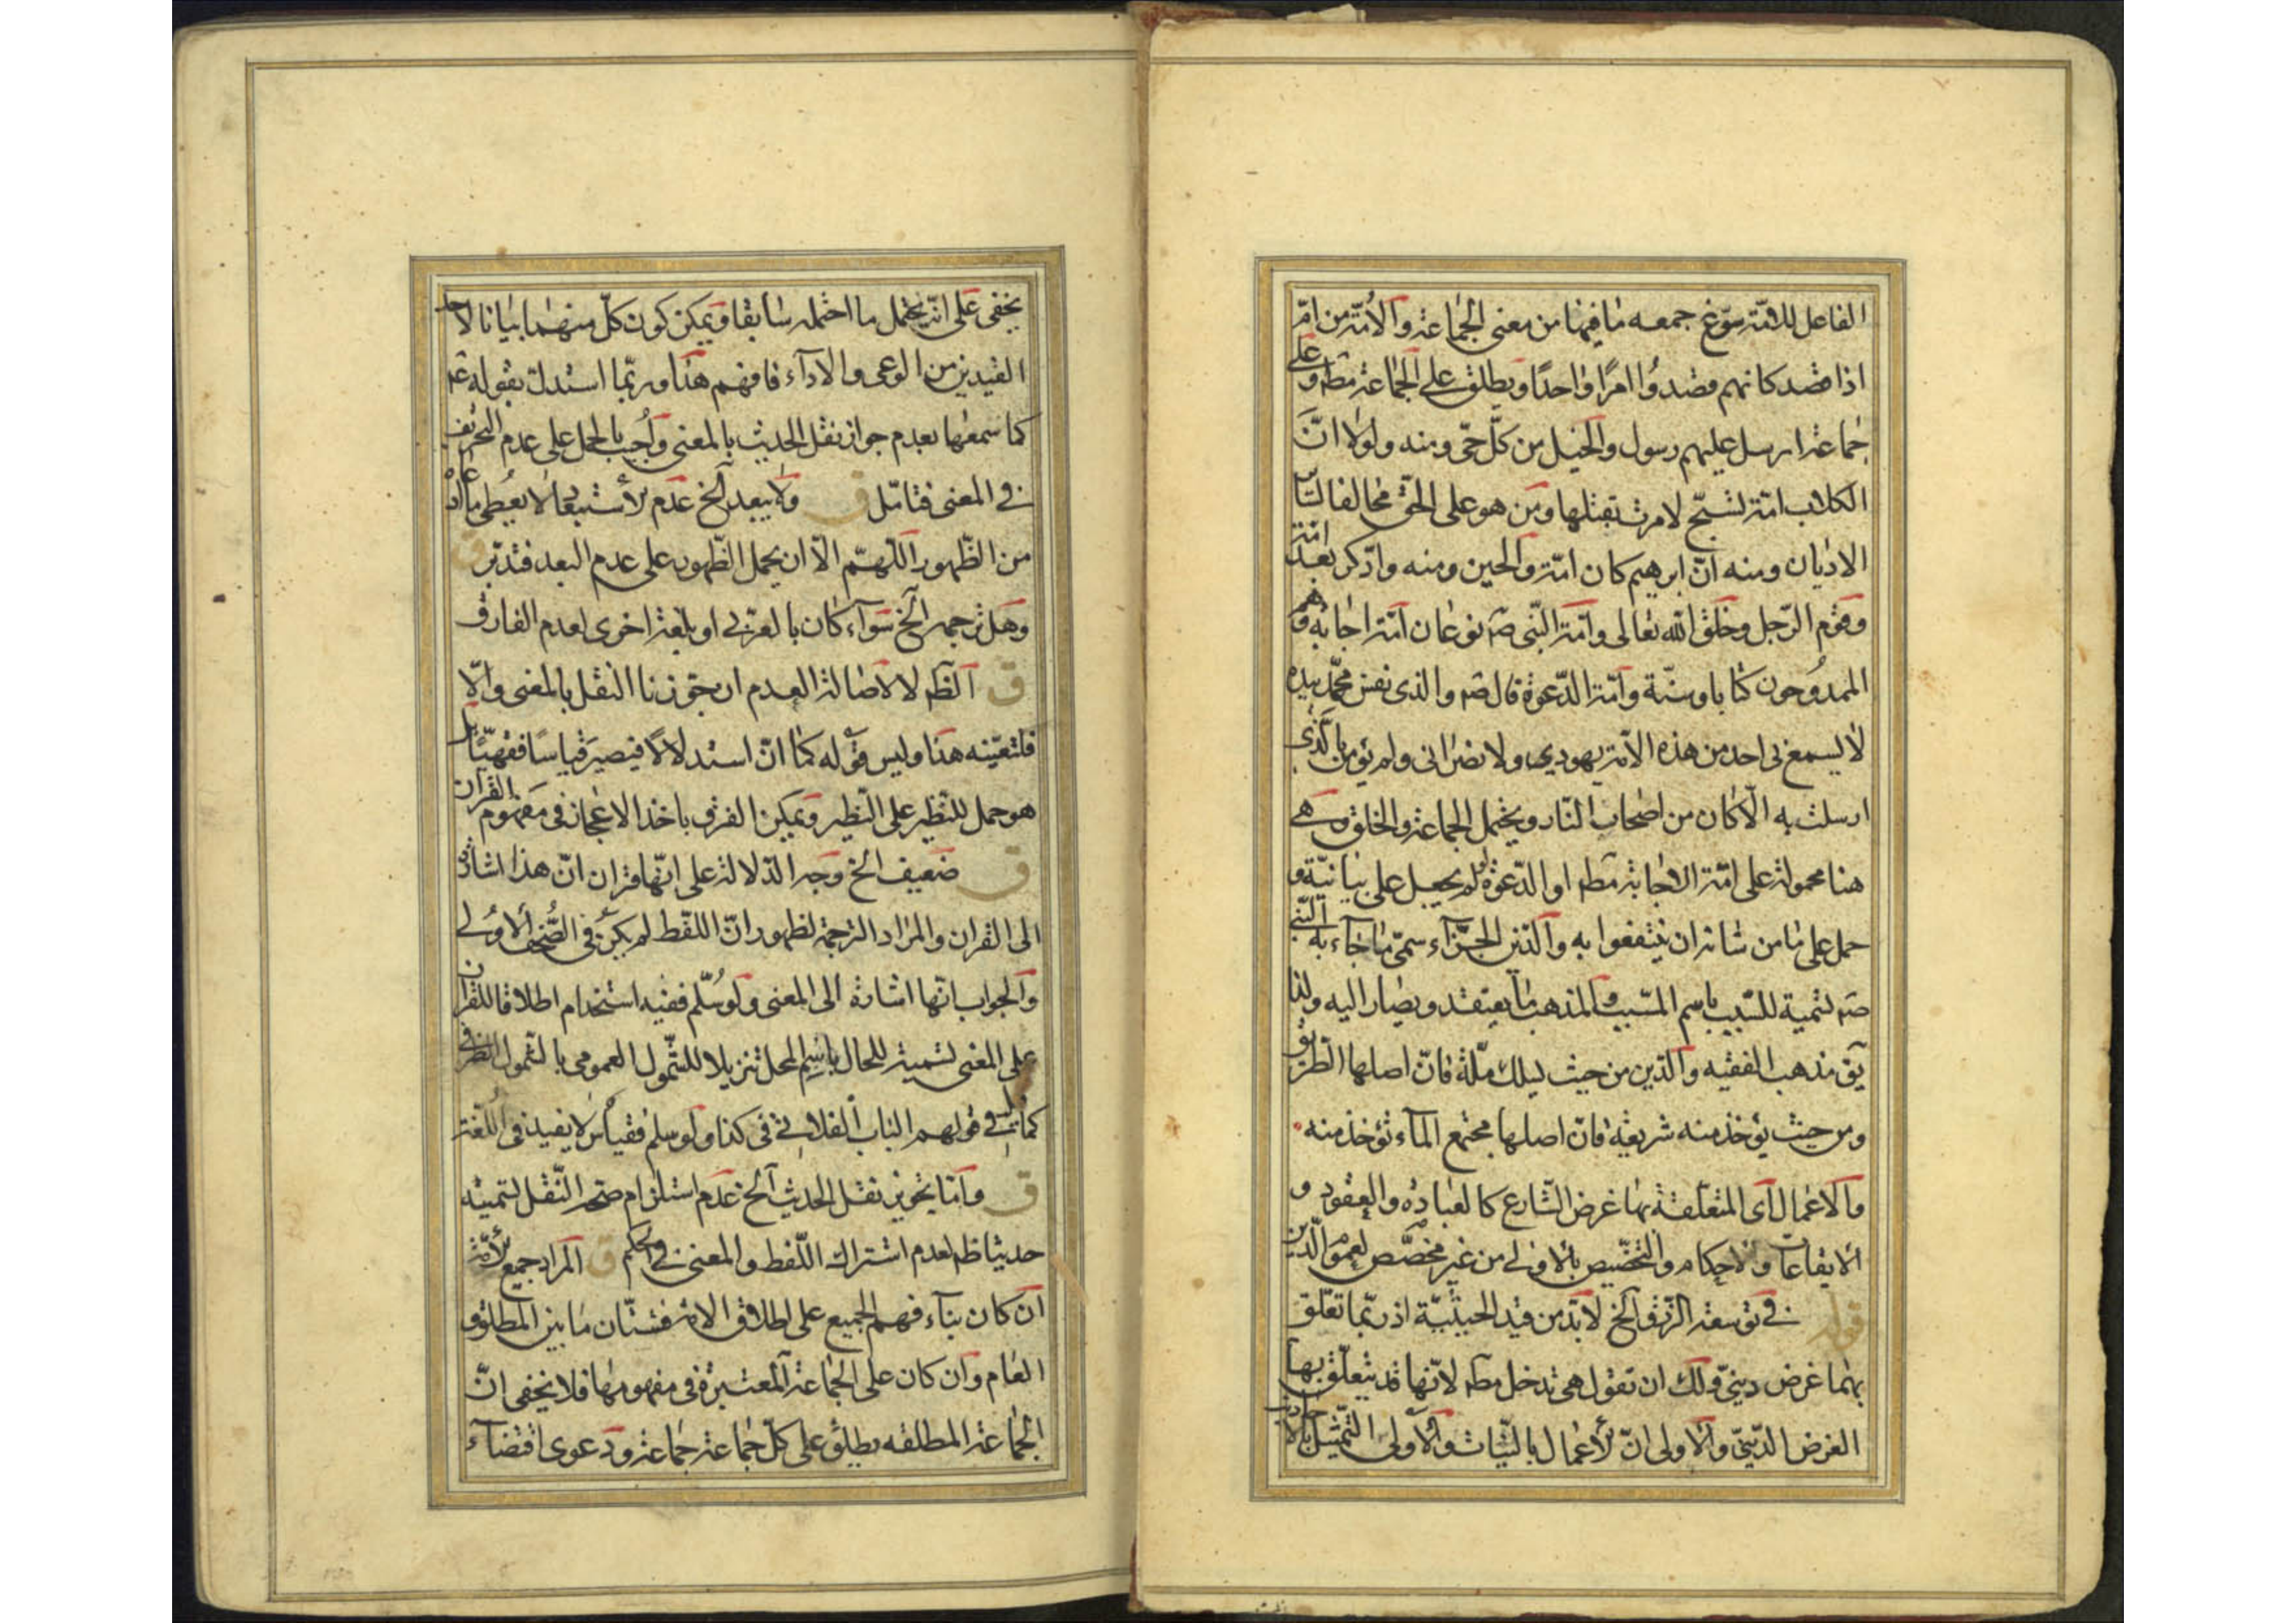 الفاعل للامّة سوّغ جمعه ما فيها من معنى الجماعة والأمّة من امّ
اذا قصد كانهم قصدوا امرًا واحدًا ويطلق على الجماعة مطـ وعلى
جماعة ارسل عليهم رسول والخيل من كلّ حىّ ومنه ولولا انّ
الكلاب امّة تسبّح لامرت بقتلها ومن هو على الحقّ مخالفا لسا
الاديان ومنه انّ ابرهيم كان امّة والحين ومنه وادّكر بعد امّة
وقوم الرّجل وخلق الله تعالى وامّة النّبى صـ نوعان امّة اجابة وهم
الممدوحون كتابا وسنّة وامّة الدّعوة قال صـ والذى نفس محمّد بيده
لا يسمع بى احد من هذه الامّة يهودى ولا نصرانى ولم يؤمن بالّذى
ارسلت به الّا كان من اصحاب النّار ويحتمل الجماعة والخلق وهى
هنا محمولة على امّة الاجابة مطـ او الدّعوة لو لم يجعل على بيانيّة و
حمل على ما من شانه ان ينتفعوا به والدّين الجزآء سمّى ما جآء به النّبى
صـ تسمية للسّبب باسم المسّبب والمذهب ما يعتقد ويصار اليه ولذا
يق مذهب الفقيه والدّين من حيث يسلك ملّة فانّ اصلها الطّريق
ومن حيث يؤخذ منه شريعة فانّ اصلها مجتمع المآء تؤخذ منه
والاعمال اى المتعلّقة بها غرض الشّارع كالعبادة والعقود و
الايقاعات والاحكام والتّخصّيص بالاولى من غير مخصّص لعموم الدّين
قوله فى توسعة الرّزق الخ لابدّ من قيد الحيثيّة اذ ربّما تعلّق
بهما غرض دينىّ ولك ان تقول هى تدخل مطـ لانّها قد يتعلّق بها
الغرض الدّينىّ والاولى انّ الأعمال بالنيّات والاولى التّمثيل بالاداب
يخفى على انّه يحتمل ما احتمله سابقا ويمكن كون كلّ منهما بيانا لاحد
القيدين من الوعى والادآء فافهم هذا وربّما استدلّ بقوله عـ
كما سمعها بعدم جواز نقل الحديث بالمعنى واُجيب بالحمل على عدم التّحريف
فى المعنى فتامّل ق ولا يبعد الخ عدم الأستبعاد لا يعطى ما اراد
من الظّهور اللّهمّ الّا ان يحمل الظّهور على عدم البعد فتدبّر ق
وهل ترجمه الخ سوآء كان بالعربى او بلغة اخرى لعدم الفارق
ق الظّـ لا لاصالة العدم ان جوّزنا النقل بالمعنى والّا
فلتعيّنه هنا وليس قوله كما انّ استدلالا فيصير قياسًا فقهيّا بل
هو حمل للنّظير على النّظير ويمكن الفرق باخذ الاعجاز فى مفهوم القرآن
ق ضعيف الخ وجه الدّلالة على انّها قرآن انّ هذا اشارة
الى القرآن والمراد الترجمة لظهور انّ اللّفظ لم يكن فى الصّحف الأولى
والجواب انّها اشارة الى المعنى ولو سُلّم ففيه استخدام اطلاقا للقرآن
على المعنى تسمية للحال باسم المحل تنزيلا للشّمول العمومى بالشّمول الظرفى
كما فى قولهم الباب الفلانى فى كذا ولو سلم فقياس لا يفيد فى اللّغة
ق وامّا تجويز نقل الحديث الخ عدم استلزام صحّة النّقل لتسميته
حديثا ظـ لعدم اشتراك اللّفظ والمعنى فى الحكم ق المراد جميع الأمّة
ان كان بنآء فهم الجميع على اطلاق الامّة فشتّان ما بين المطلق و
العام وان كان على الجماعة المعتبرة فى مفهومها فلا يخفى انّ
الجماعة المطلقه يطلق على كلّ جماعة جماعة ودعوى اقتضآء